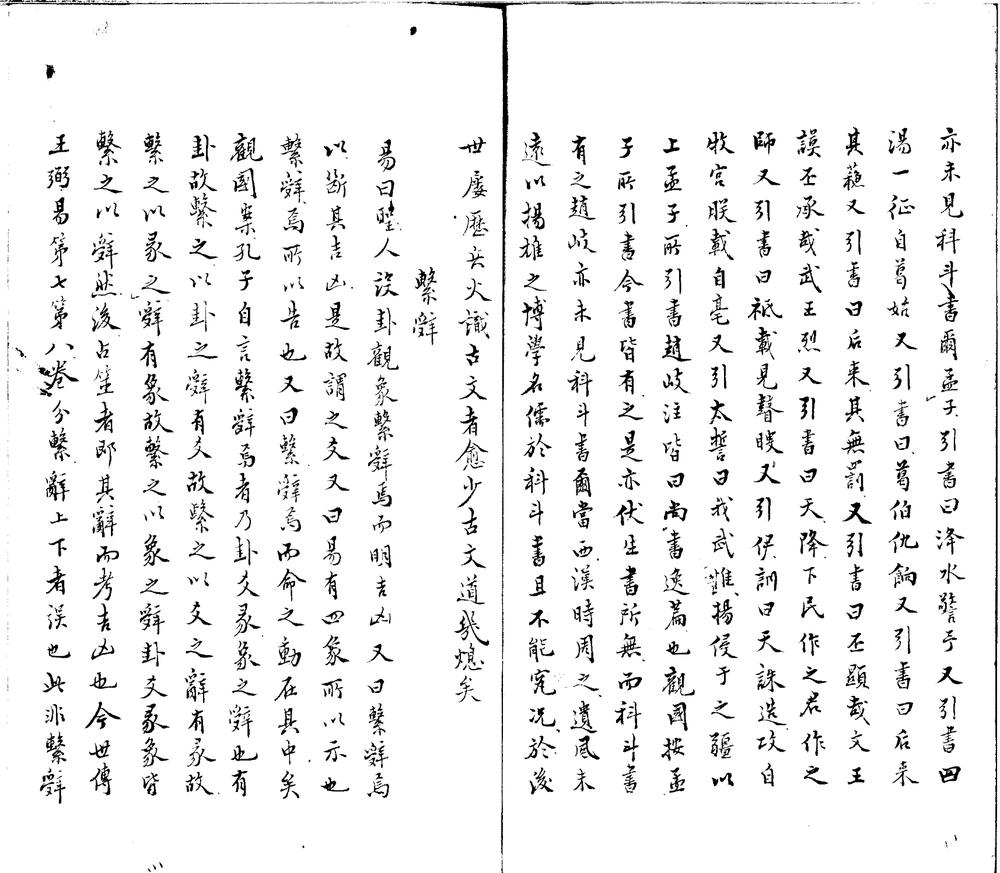 亦未見科斗書爾孟子引書曰洚水警予又引書四
湯一征自葛始又引書曰葛伯仇餉又引書曰后來
其蘓又引書曰后来其無罰又引書曰丕顯哉文王
謨丕承哉武王烈又引書曰天降下民作之君作之
師又引書曰祗載見瞽瞍又引伊訓曰天誅造攻自
牧宫朕載自亳又引太誓曰我武惟揚侵于之疆以
上孟子所引書趙岐注皆曰尚書逸篇也觀國按孟
子所引書今書皆有之是亦伏生書所無而科斗書
有之趙岐亦未見科斗書爾當西漢時周之遺風未
遠以揚雄之博學名儒於科斗書且不能究况於後
世屢歷兵火識古文者愈少古文道幾熄矣
繫辭
易曰聖人設卦觀象繫辭焉而明吉凶又曰繫辭焉
以斷其吉凶是故謂之爻又曰易有四象所以示也
繫辭焉所以告也又曰繫辭焉而命之動在其中矣
觀國案孔子自言繫辭焉者乃卦爻彖象之辭也有
卦故繫之以卦之辭有爻故繫之以爻之辭有彖故
繫之以彖之辭有象故繫之以象之辭卦爻彖象皆
繫之以辭然後占筮者即其辭而考吉凶也今世傳
王弼易第七第八卷分繫辭上下者误也此非繫辭